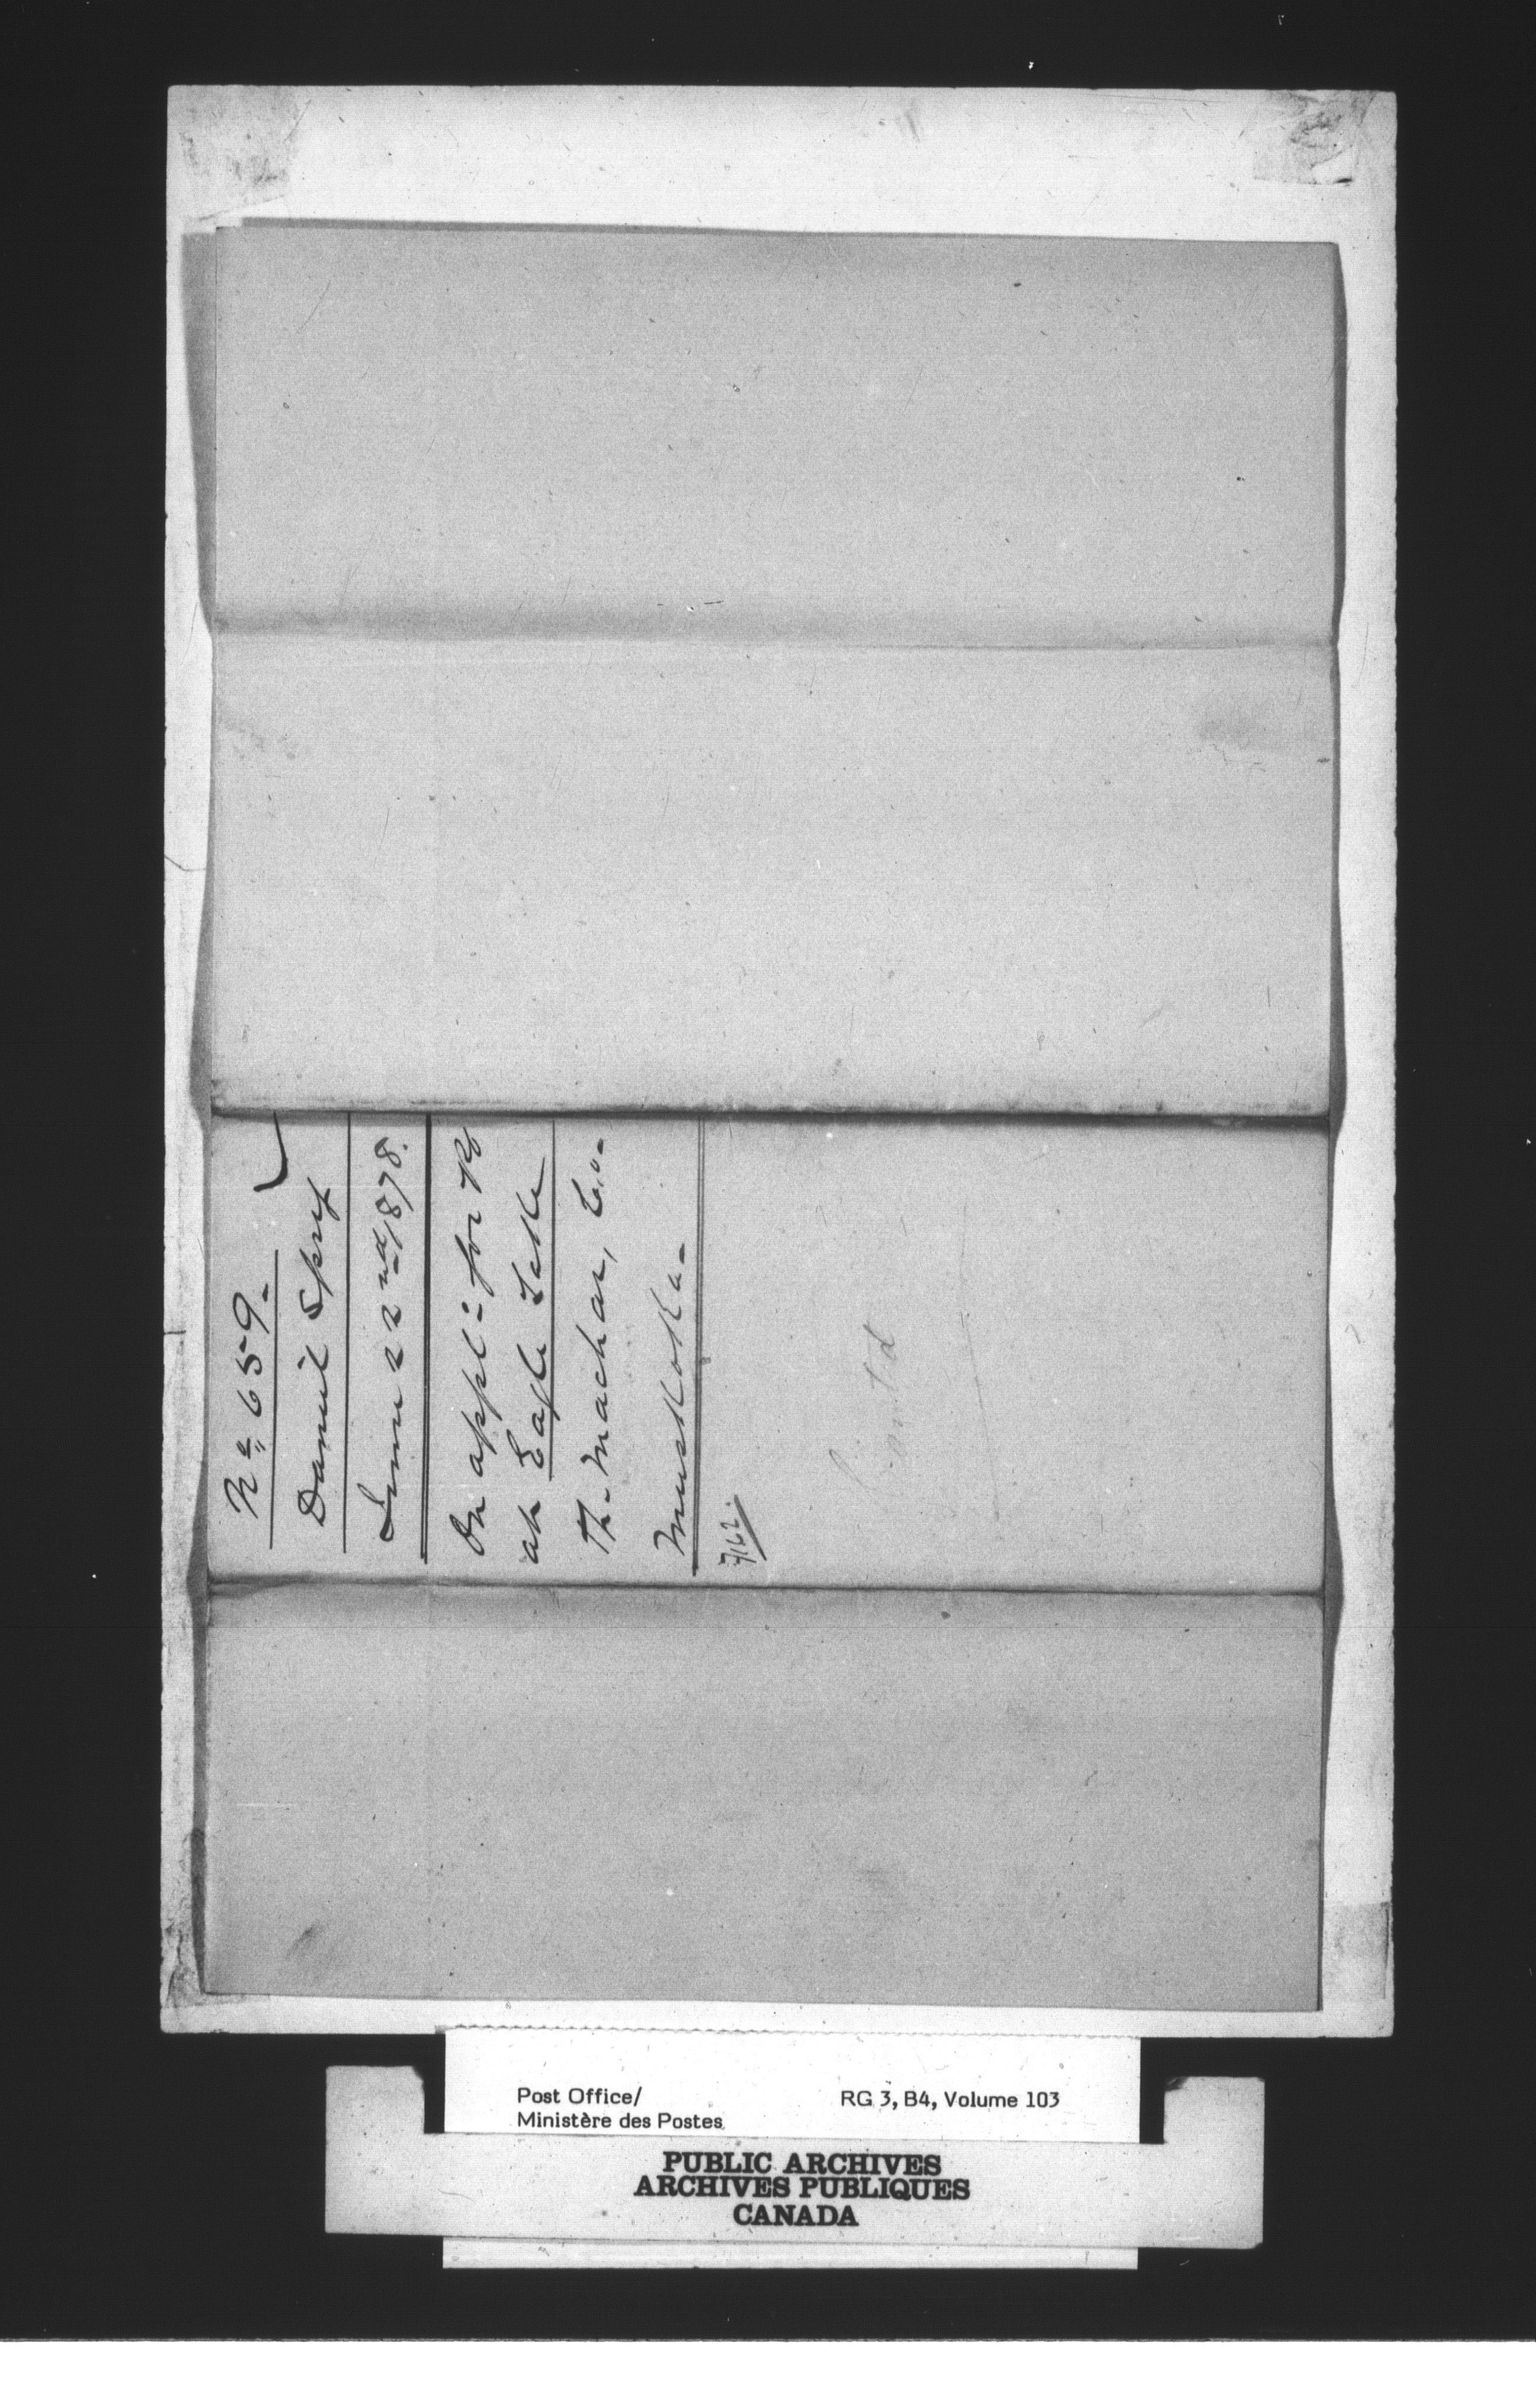 No 659-
Daniel Spry
June 22nd/1878.
On appl: for PO
at Eagle Lake
Tp. Machar, Co.
Muskoka-
7/62.
Post Office/
Ministère des Postes
RG 3, B4, Volume 103
PUBLIC ARCHIVES
ARCHIVES PUBLIQUES
CANADA